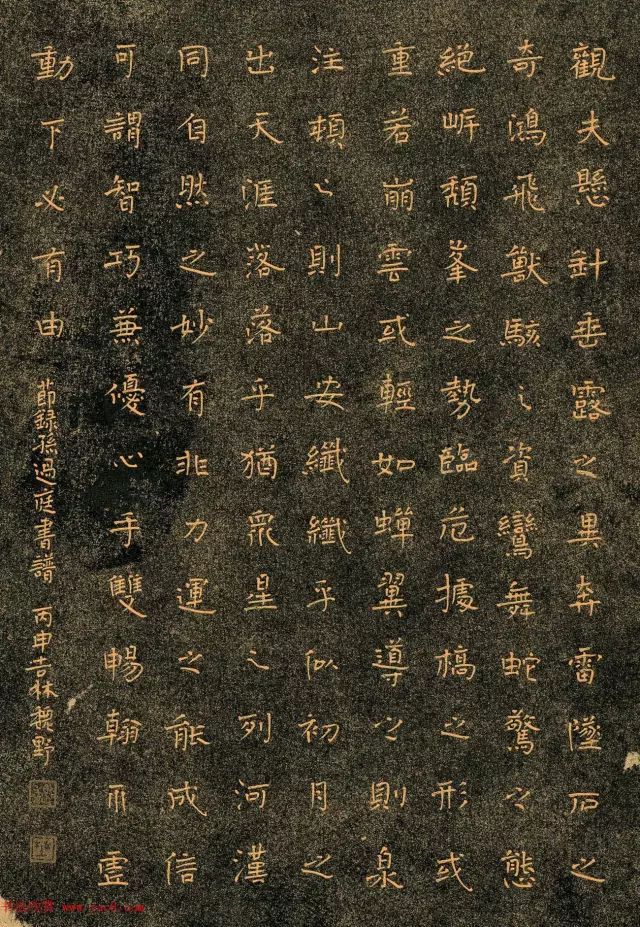 觀夫懸針垂露之異奔雷墜石之
奇鴻飛獸駭之資鸞舞蛇驚之態
絕岸頹峯之勢臨危據槁之形或
重若崩雲或輕如蟬翼導之則泉
注頓之則山安纖纖乎似初月之
出天涯落落乎猶眾星之列河漢
同自然之妙有非力運之能成信
可謂智巧兼優心手雙暢翰不虛
動下必有由
節録孫過庭書譜 丙申吉林野